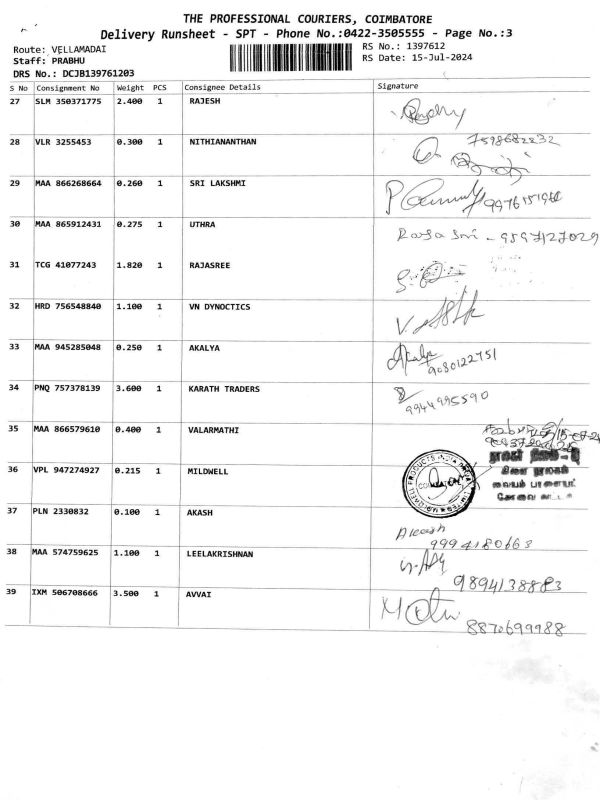 THE PROFESSIONAL COURIERS, COIMBATORE
Delivery Runsheet - SPT - Phone No.:0422-3505555 - Page No.:3
Route: VELLAMADAI
RS No.: 1397612
Staff: PRABHU
RS Date: 15-Jul-2024
DRS No.: DCJB139761203
S No Consignment No Weight PCS Consignee Details Signature
27 SLM 350371775 2.400 1 RAJESH
28 VLR 3255453 0.300 1 NITHIANANTHAN 7598682832
29 MAA 866268664 0.260 1 SRI LAKSHMI
30 MAA 865912431 0.275 1 UTHRA
31 TCG 41077243 1.820 1 RAJASREE
32 HRD 756548840 1.100 1 VN DYNOCTICS
33 MAA 945285048 0.250 1 AKALYA Akalya
9080122751
34 PNQ 757378139 3.600 1 KARATH TRADERS
9944995590
35 MAA 866579610 0.400 1 VALARMATHI
36 VPL 947274927 0.215 1 MILDWELL COIMBATORE
37 PLN 2330832 0.100 1 AKASH Akash
9994180663
38 MAA 574759625 1.100 1 LEELAKRISHNAN
9894138883
39 IXM 506708666 3.500 1 AVVAI
8870699988